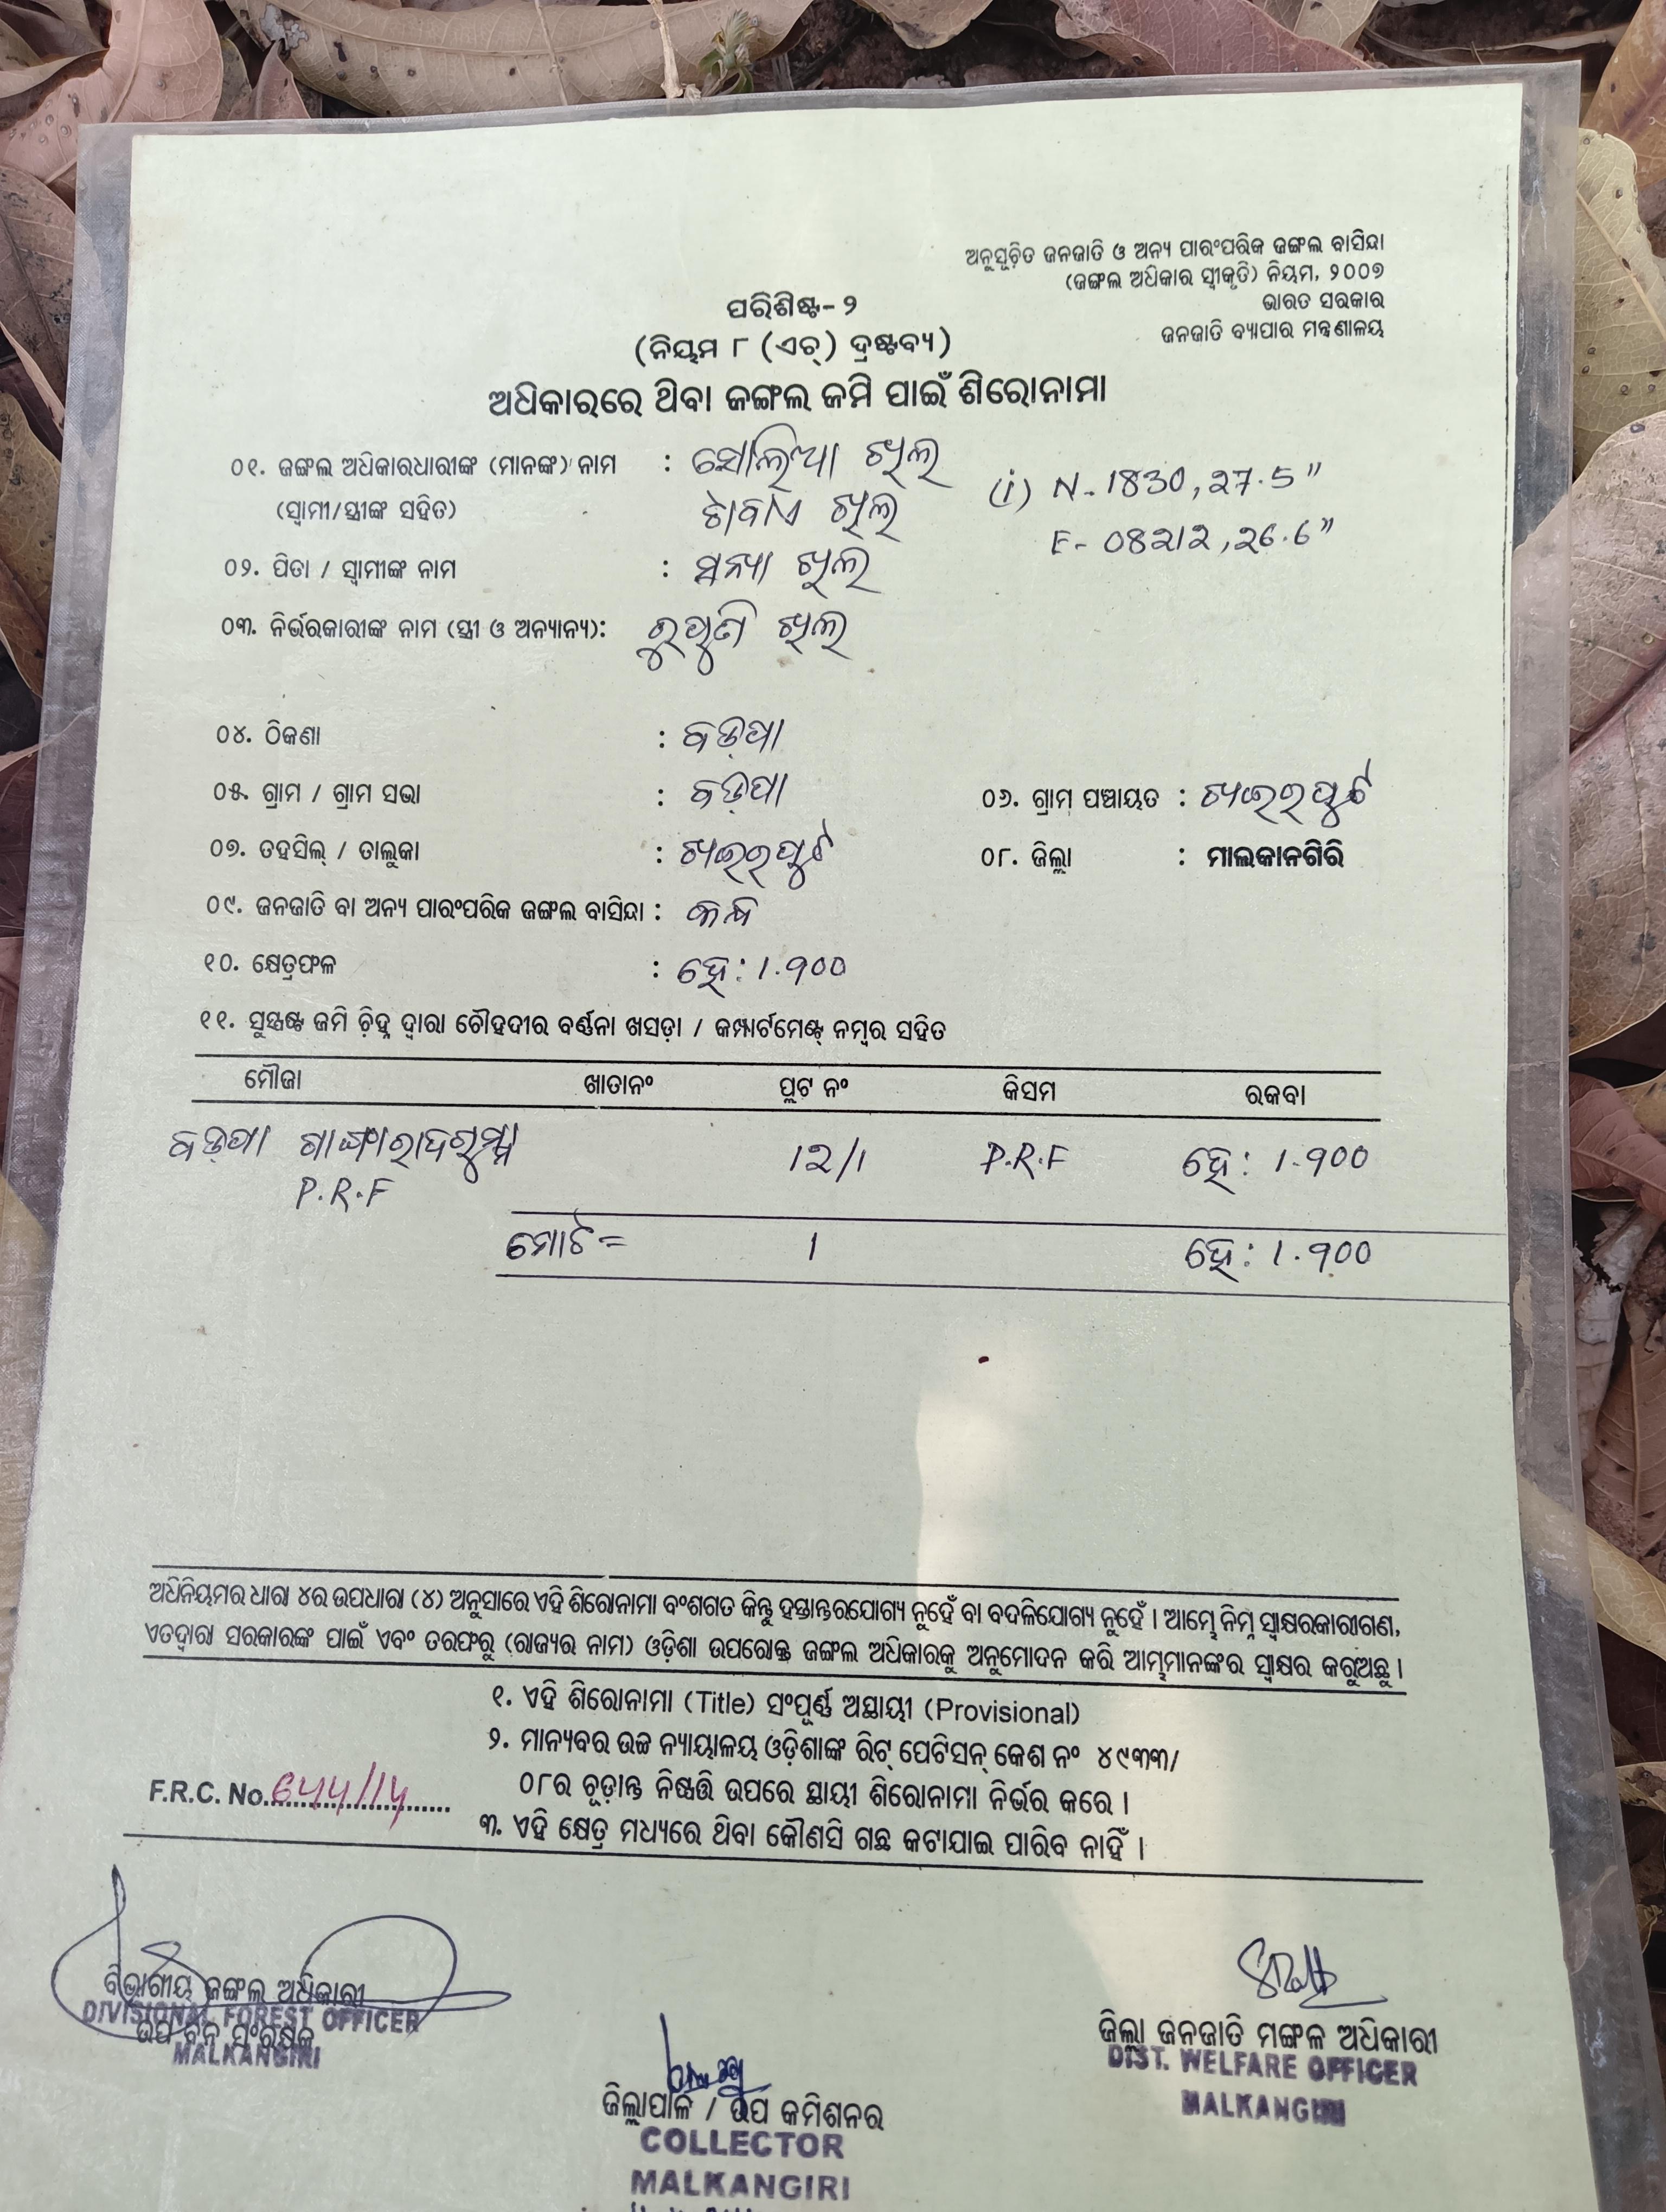 ଅନୁସୂଚିତ ଜନଜାତି ଓ ଅନ୍ୟ ପାରଂପରିକ ଜଙ୍ଗଲ ବାସିନ୍ଦା
(ଜଙ୍ଗଲ ଅଧିକାର ସ୍ୱୀକୃତି) ନିୟମ, ୨୦୦୭
ଭାରତ ସରକାର
ଜନଜାତି ବ୍ୟାପାର ମନ୍ତ୍ରଣାଳୟ
ପରିଶିଷ୍ଟ-୨
(ନିୟମ ୮ (ଏଚ୍) ଦ୍ରଷ୍ଟବ୍ୟ)
ଅଧିକାରରେ ଥିବା ଜଙ୍ଗଲ ଜମି ପାଇଁ ଶିରୋନାମା
୦୧. ଜଙ୍ଗଲ ଅଧିକାରଧାରୀଙ୍କ (ମାନଙ୍କ) ନାମ : ଖିଲ (i) N-1830,27.5"
(ସ୍ୱାମୀ/ସ୍ତ୍ରୀଙ୍କ ସହିତ) ଖିଲ E-08212,26.6"
୦୨. ପିତା / ସ୍ୱାମୀଙ୍କ ନାମ : ଖିଲ
୦୩. ନିର୍ଭରକାରୀଙ୍କ ନାମ (ସ୍ତ୍ରୀ ଓ ଅନ୍ୟାନ୍ୟ): ଖିଲ
୦୪. ଠିକଣା : ବଡ଼ପା
୦୫. ଗ୍ରାମ / ଗ୍ରାମ ସଭା : ବଡ଼ପା ୦୬. ଗ୍ରାମ ପଞ୍ଚାୟତ : ଖଇରପୁଟ
୦୭. ତହସିଲ୍ / ତାଲୁକା : ଖଇରପୁଟ ୦୮. ଜିଲ୍ଲା : ମାଲକାନଗିରି
୦୯. ଜନଜାତି ବା ଅନ୍ୟ ପାରଂପରିକ ଜଙ୍ଗଲ ବାସିନ୍ଦା : କନ୍ଧ
୧୦. କ୍ଷେତ୍ରଫଳ : ହେ: 1.900
୧୧. ସୁସ୍ପଷ୍ଟ ଜମି ଚିହ୍ନ ଦ୍ୱାରା ଚୌହଦୀର ବର୍ଣ୍ଣନା ଖସଡ଼ା / କମ୍ପାର୍ଟମେଣ୍ଟ୍ ନମ୍ବର ସହିତ
ମୌଜା ଖାତାନଂ ପ୍ଲଟ ନଂ କିସମ ରକବା
ବଡ଼ପା 12/1 P.R.F ହେ: 1.900
P.R.F
ମୋଟ= 1 ହେ: 1.900
ଅଧିନିୟମର ଧାରା ୪ର ଉପଧାରା (୪) ଅନୁସାରେ ଏହି ଶିରୋନାମା ବଂଶଗତ କିନ୍ତୁ ହସ୍ତାନ୍ତରଯୋଗ୍ୟ ନୁହେଁ ବା ବଦଳିଯୋଗ୍ୟ ନୁହେଁ । ଆମ୍ଭେ ନିମ୍ନ ସ୍ୱାକ୍ଷରକାରୀଗଣ,
ଏତଦ୍ୱାରା ସରକାରଙ୍କ ପାଇଁ ଏବଂ ତରଫରୁ (ରାଜ୍ୟର ନାମ) ଓଡ଼ିଶା ଉପରୋକ୍ତ ଜଙ୍ଗଲ ଅଧିକାରକୁ ଅନୁମୋଦନ କରି ଆମ୍ଭମାନଙ୍କର ସ୍ୱାକ୍ଷର କରୁଅଛୁ ।
୧. ଏହି ଶିରୋନାମା (Title) ସଂପୂର୍ଣ୍ଣ ଅସ୍ଥାୟୀ (Provisional)
୨. ମାନ୍ୟବର ଉଚ୍ଚ ନ୍ୟାୟାଳୟ ଓଡ଼ିଶାଙ୍କ ରିଟ୍ ପେଟିସନ୍ କେଶ ନଂ ୪୯୩୩/
୦୮ର ଚୂଡ଼ାନ୍ତ ନିଷ୍ପତ୍ତି ଉପରେ ସ୍ଥାୟୀ ଶିରୋନାମା ନିର୍ଭର କରେ ।
F.R.C. No. 644/14
୩. ଏହି କ୍ଷେତ୍ର ମଧ୍ୟରେ ଥିବା କୌଣସି ଗଛ କଟାଯାଇ ପାରିବ ନାହିଁ ।
ବିଭାଗୀୟ ଜଙ୍ଗଲ ଅଧିକାରୀ
DIVISIONAL FOREST OFFICER
ଉପ ବନ ସଂରକ୍ଷକ
MALKANGIRI
ଜିଲ୍ଲା ଜନଜାତି ମଙ୍ଗଳ ଅଧିକାରୀ
DIST. WELFARE OFFICER
MALKANGIRI
ଜିଲ୍ଲାପାଳ / ଉପ କମିଶନର
COLLECTOR
MALKANGIRI